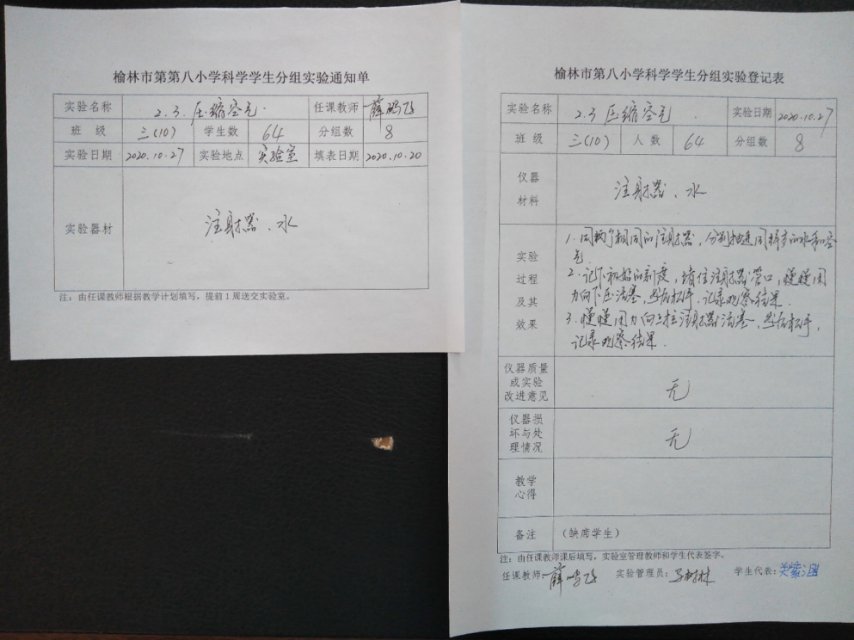 榆林市第第八小学科学学生分组实验通知单
实验名称 2.3.压缩空气. 任课教师
班 级 三(10) 学生数 64 分组数 8
实验日期 2020.10.27 实验地点 实验室 填表日期 2020.10.20
实验器材 注射器、水
注：由任课教师根据教学计划填写，提前1周送交实验室。
榆林市第八小学科学学生分组实验登记表
实验名称 2.3 压缩空气. 实验日期 2020.10.27
班 级 三(10) 人 数 64 分组数 8
仪器
材料
注射器、水
实验
过程
及其
效果
1.用两个相同的注射器，分别抽进同样多的水和空
气
2.记下初始的刻度，堵住注射器管口，慢慢用
力向下压活塞，然后松手，记录观察结果.
3.慢慢用力向上拉注射器活塞，然后松手，
记录观察结果.
仪器质量
或实验
改进意见
无
仪器损
坏与处
理情况
无
教学
心得
备注 （缺席学生）
注：由任课教师课后填写，实验室管理教师和学生代表签字。
任课教师: 实验管理员: 学生代表: